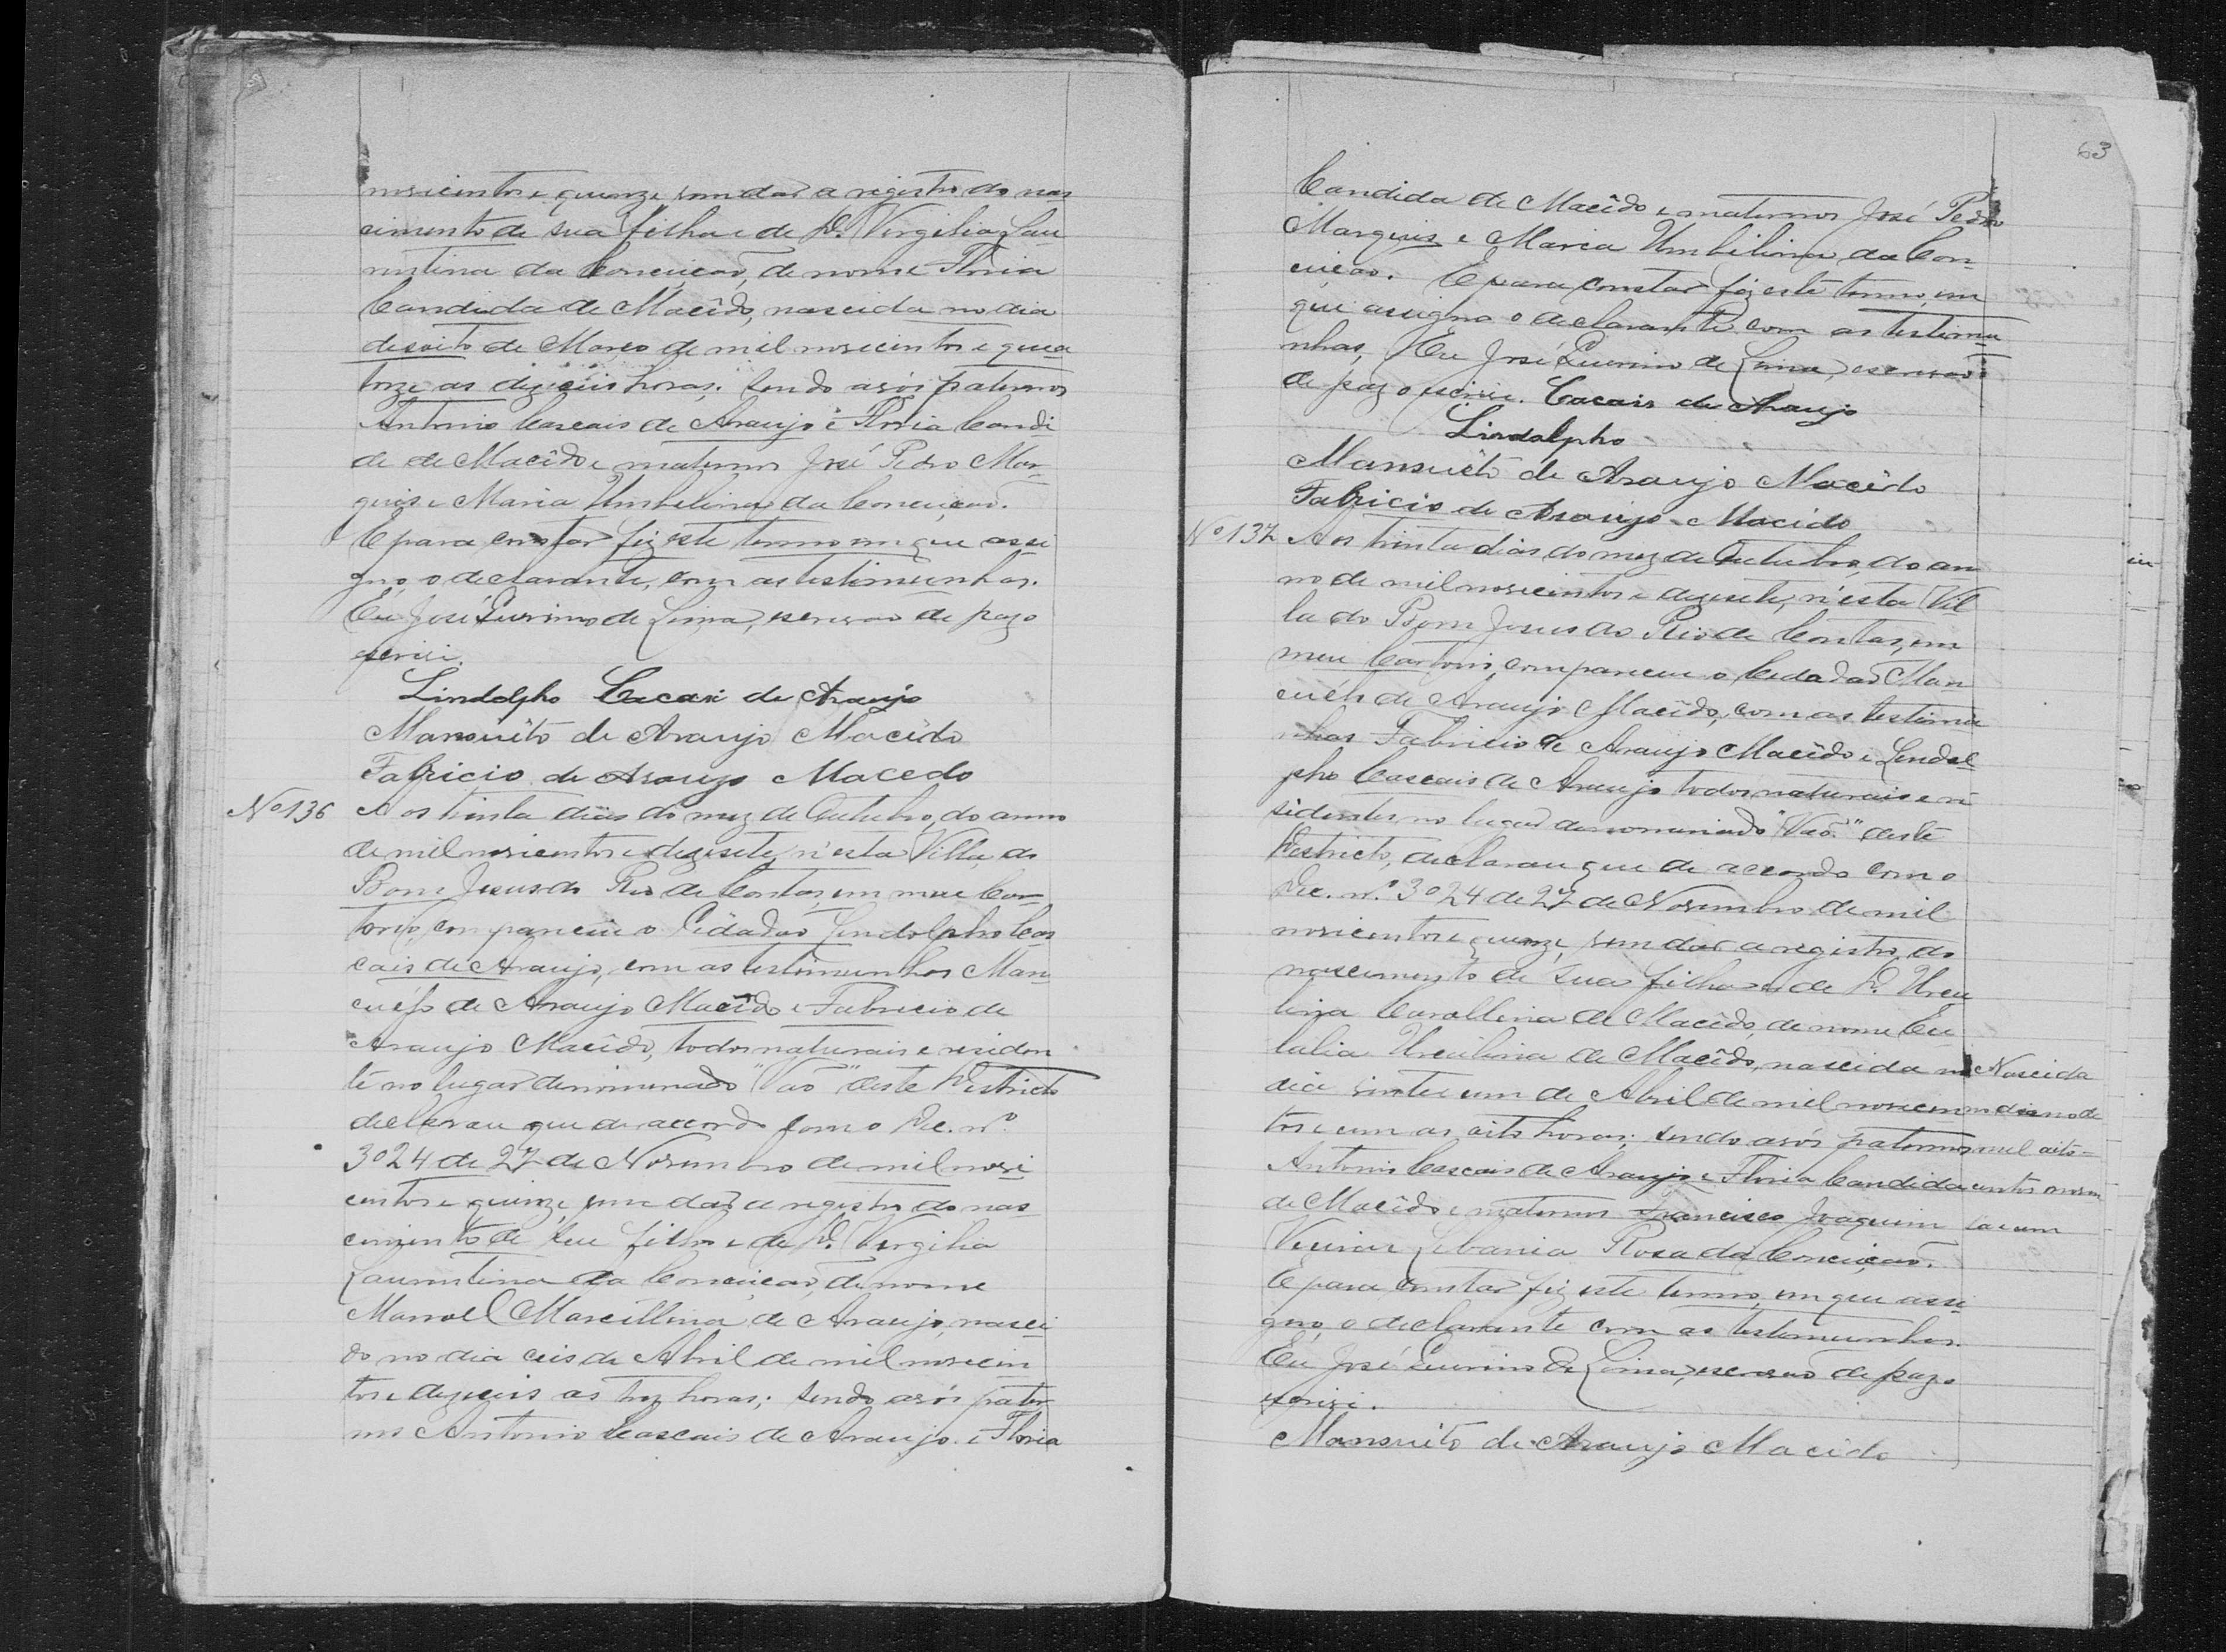 novicentos e quinze, vem dar a registro do nas
cimento de sua filha e de D. Virgilia Lau
rentina da Conceição, de nome Floria
Candida de Macêdo, nascida no dia
desoito de Março de mil novicentos e qua
torze as dizeseis horas; sendo avós paternos
Antonio Cascais de Araujo e Floria Candi
de de Macêdo e maternos José Pedro Mar
quis e Maria Umbelina da Conceição.
E para constar fiz este termo em que assi
gno, o declarante, com as testimunhas.
Eu José Querino de Lima, escrivão de paz o
escrivi.
Lindolpho Cacais de Araujo
Mansuêto de Araujo Macêdo
Fabricio de Araujo Macedo
Nº 136 Aos trinta dias do mez de Outubro, do anno
de mil novicentos e dezesete, n'esta Villa, do
Bom Jesus do Rio de Contas, em meu Car
torio, compareceu o Cidadão Lindolpho Cas
cais de Araujo, com as testimunhas Man
cuêto de Araujo Macêdo e Fabricio de
Araujo Macêdo, todos naturais e residen
te no lugar denominado "Vão" deste Districto
declarou que de accordo com o Dec. nº
3024 de 27 de Novembro de mil novi
centos e quinze, vem dar a registro do nas
cimento de seu filho e de D. Virgilia
Laurentina da Conceição, de nome
Manoel Marcillina de Araujo, nasci
do no dia ceis de Abril de mil novicen
tos e dezeceis as trez horas; sendo avós pater
nos Antonio Cascais de Araujo e Floria
63
Candida de Macêdo e maternos José Pedro
Marquis e Maria Umbilina da Con
ceição. E para constar fiz este termo, em
que assigna o declarante com as testimu
nhas, Eu José Querino de Lima, escrivão
de paz o escrivi. Cacais de Araujo
Lindolpho
Mansuêto de Araujo Macêdo
Fabricio de Araujo Macido
Nº 137 Aos trinta dias do mez de Outubro, do an
no de mil novicentos e dezesete, n'esta Vil
la do Bom Jesus do Rio de Contas, em
meu Cartorio, compareceu o Cidadão Man
cuêto de Araujo Macêdo, com as testimu
nhas Fabricio de Araujo Macêdo e Lindol
pho Cascais de Araujo todos naturais e re
sidentes no lugar denominado "Vão" deste
Districto, declarou que de accordo com o
Dec. nº 3024 de 27 de Novembro de mil
novicentos e quinze, vem dar a registro do
nascimento de sua filha e de D. Urcu
lina Carollina de Macêdo, de nome Eu
lalia Urculina de Macêdo, nascida no Nascida
dia vinte e um de Abril de mil novicen no dia no de
tos e um as oito horas; sendo avós paternos mil oito=
Antonio Cascais de Araujo e Floria Candida centos noven
de Macêdo e maternos Francisco Joaquim ta e um
Vieira e Libania Rosa da Conceição.
E para constar fiz este termo, em que assi
gno, o declarante com as testemunhas.
Eu José Querino de Lima, escrivão de paz o
escrivi.
Mansuêto de Araujo Macêdo